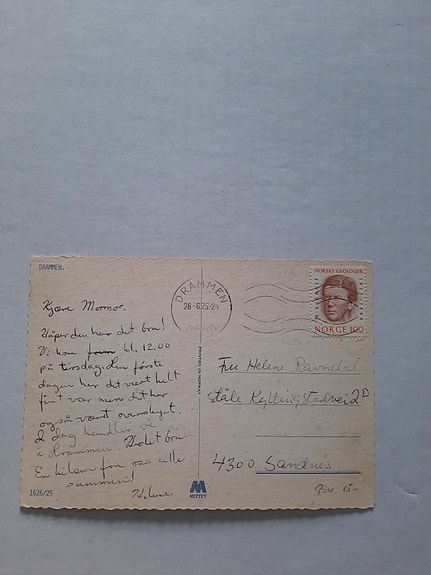 DRAMMEN.
Kjære Mormor.
Håper du har det bra!
Vi kom fram kl. 12.00
på tirsdag. Den første
dagen har det vært helt
fint vær men det har
også vært overskyet.
I dag handler vi
i Drammen. Ha det bra.
En hilsen fra oss alle
sammen!
Helene.
1626/25
DRAMMEN
28-6.75-24
PRINTED IN NORWAY
M
MITTET
NORSKE GEOLOGER
NORGE 100
Fru Helene
Ståle Kyllingstadvei 2D
4300 Sandnes
15-